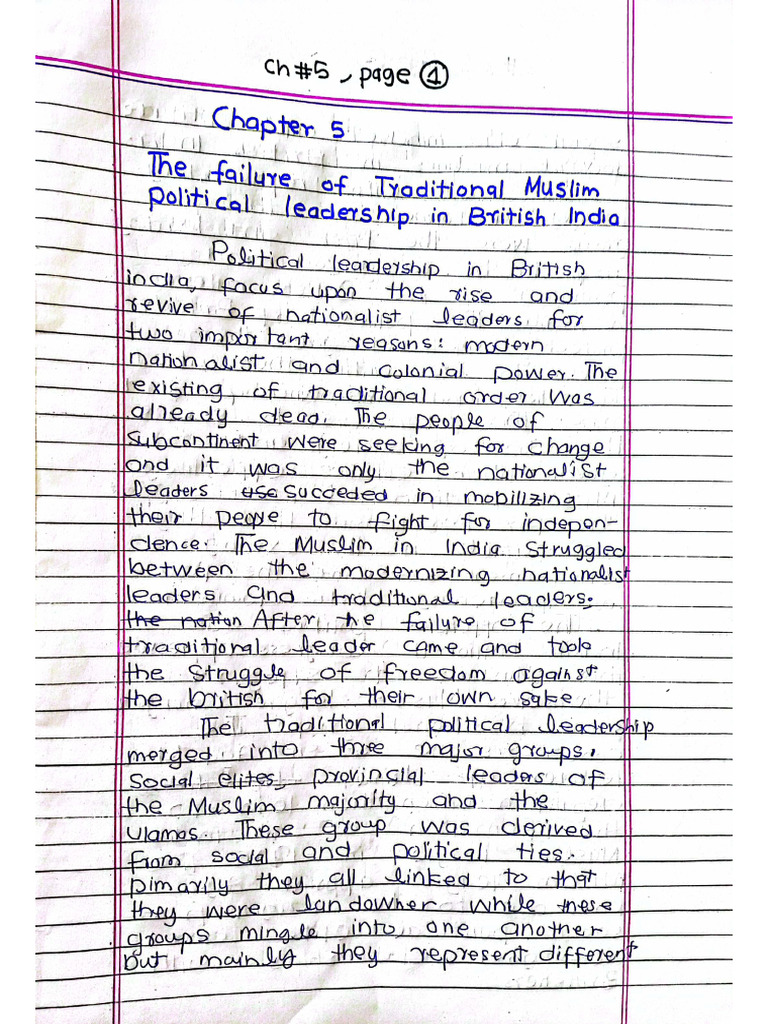 ch #5, page 1
Chapter 5
The failure of Traditional Muslim
Political leadership in British India
Political leadership in British
india, focus upon the rise and
revive of nationalist leaders for
two important reasons: modern
nationalist and colonial power. The
existing of traditional order was
already dead. The people of
subcontinent were seeking for change
and it was only the nationalist
leaders use succeded in mobilizing
their people to fight for indepen-
dence. The Muslim in India struggled
between the modernizing nationalist
leaders and traditional leaders.
the nation After he failure of
traditional leader came and took
the struggle of freedom against
the british for their own sake.
The traditional political leadership
merged into three major groups.
Social elites, provincial leaders of
the Muslim majority and the
Ulamas. These group was derived
from social and political ties.
Pimarily they all linked to that
they were landowner while these
groups mingle into one another
but mainly they represent different